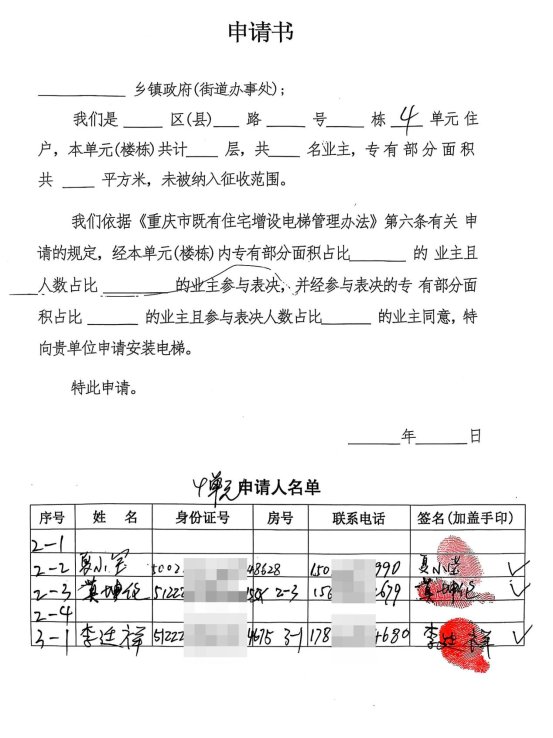 申请书
乡镇政府(街道办事处);
我们是 区(县) 路 号 栋 4 单元住
户，本单元(楼栋)共计 层，共 名业主，专有部分面积
共 平方米，未被纳入征收范围。
我们依据《重庆市既有住宅增设电梯管理办法》第六条有关 申
请的规定，经本单元(楼栋)内专有部分面积占比 的 业主且
人数占比 的业主参与表决，并经参与表决的专 有部分面
积占比 的业主且参与表决人数占比 的业主同意，特
向贵单位申请安装电梯。
特此申请。
年 日
4单元申请人名单
序号 姓 名 身份证号 房号 联系电话 签名(加盖手印)
2-1
2-2 夏小 5002 48628 150 990 夏小
2-3 黄坤 51222 2-3 156 2679 黄坤
2-4
3-1 李廷祥 51222 4675 3-1 178 4680 李廷祥